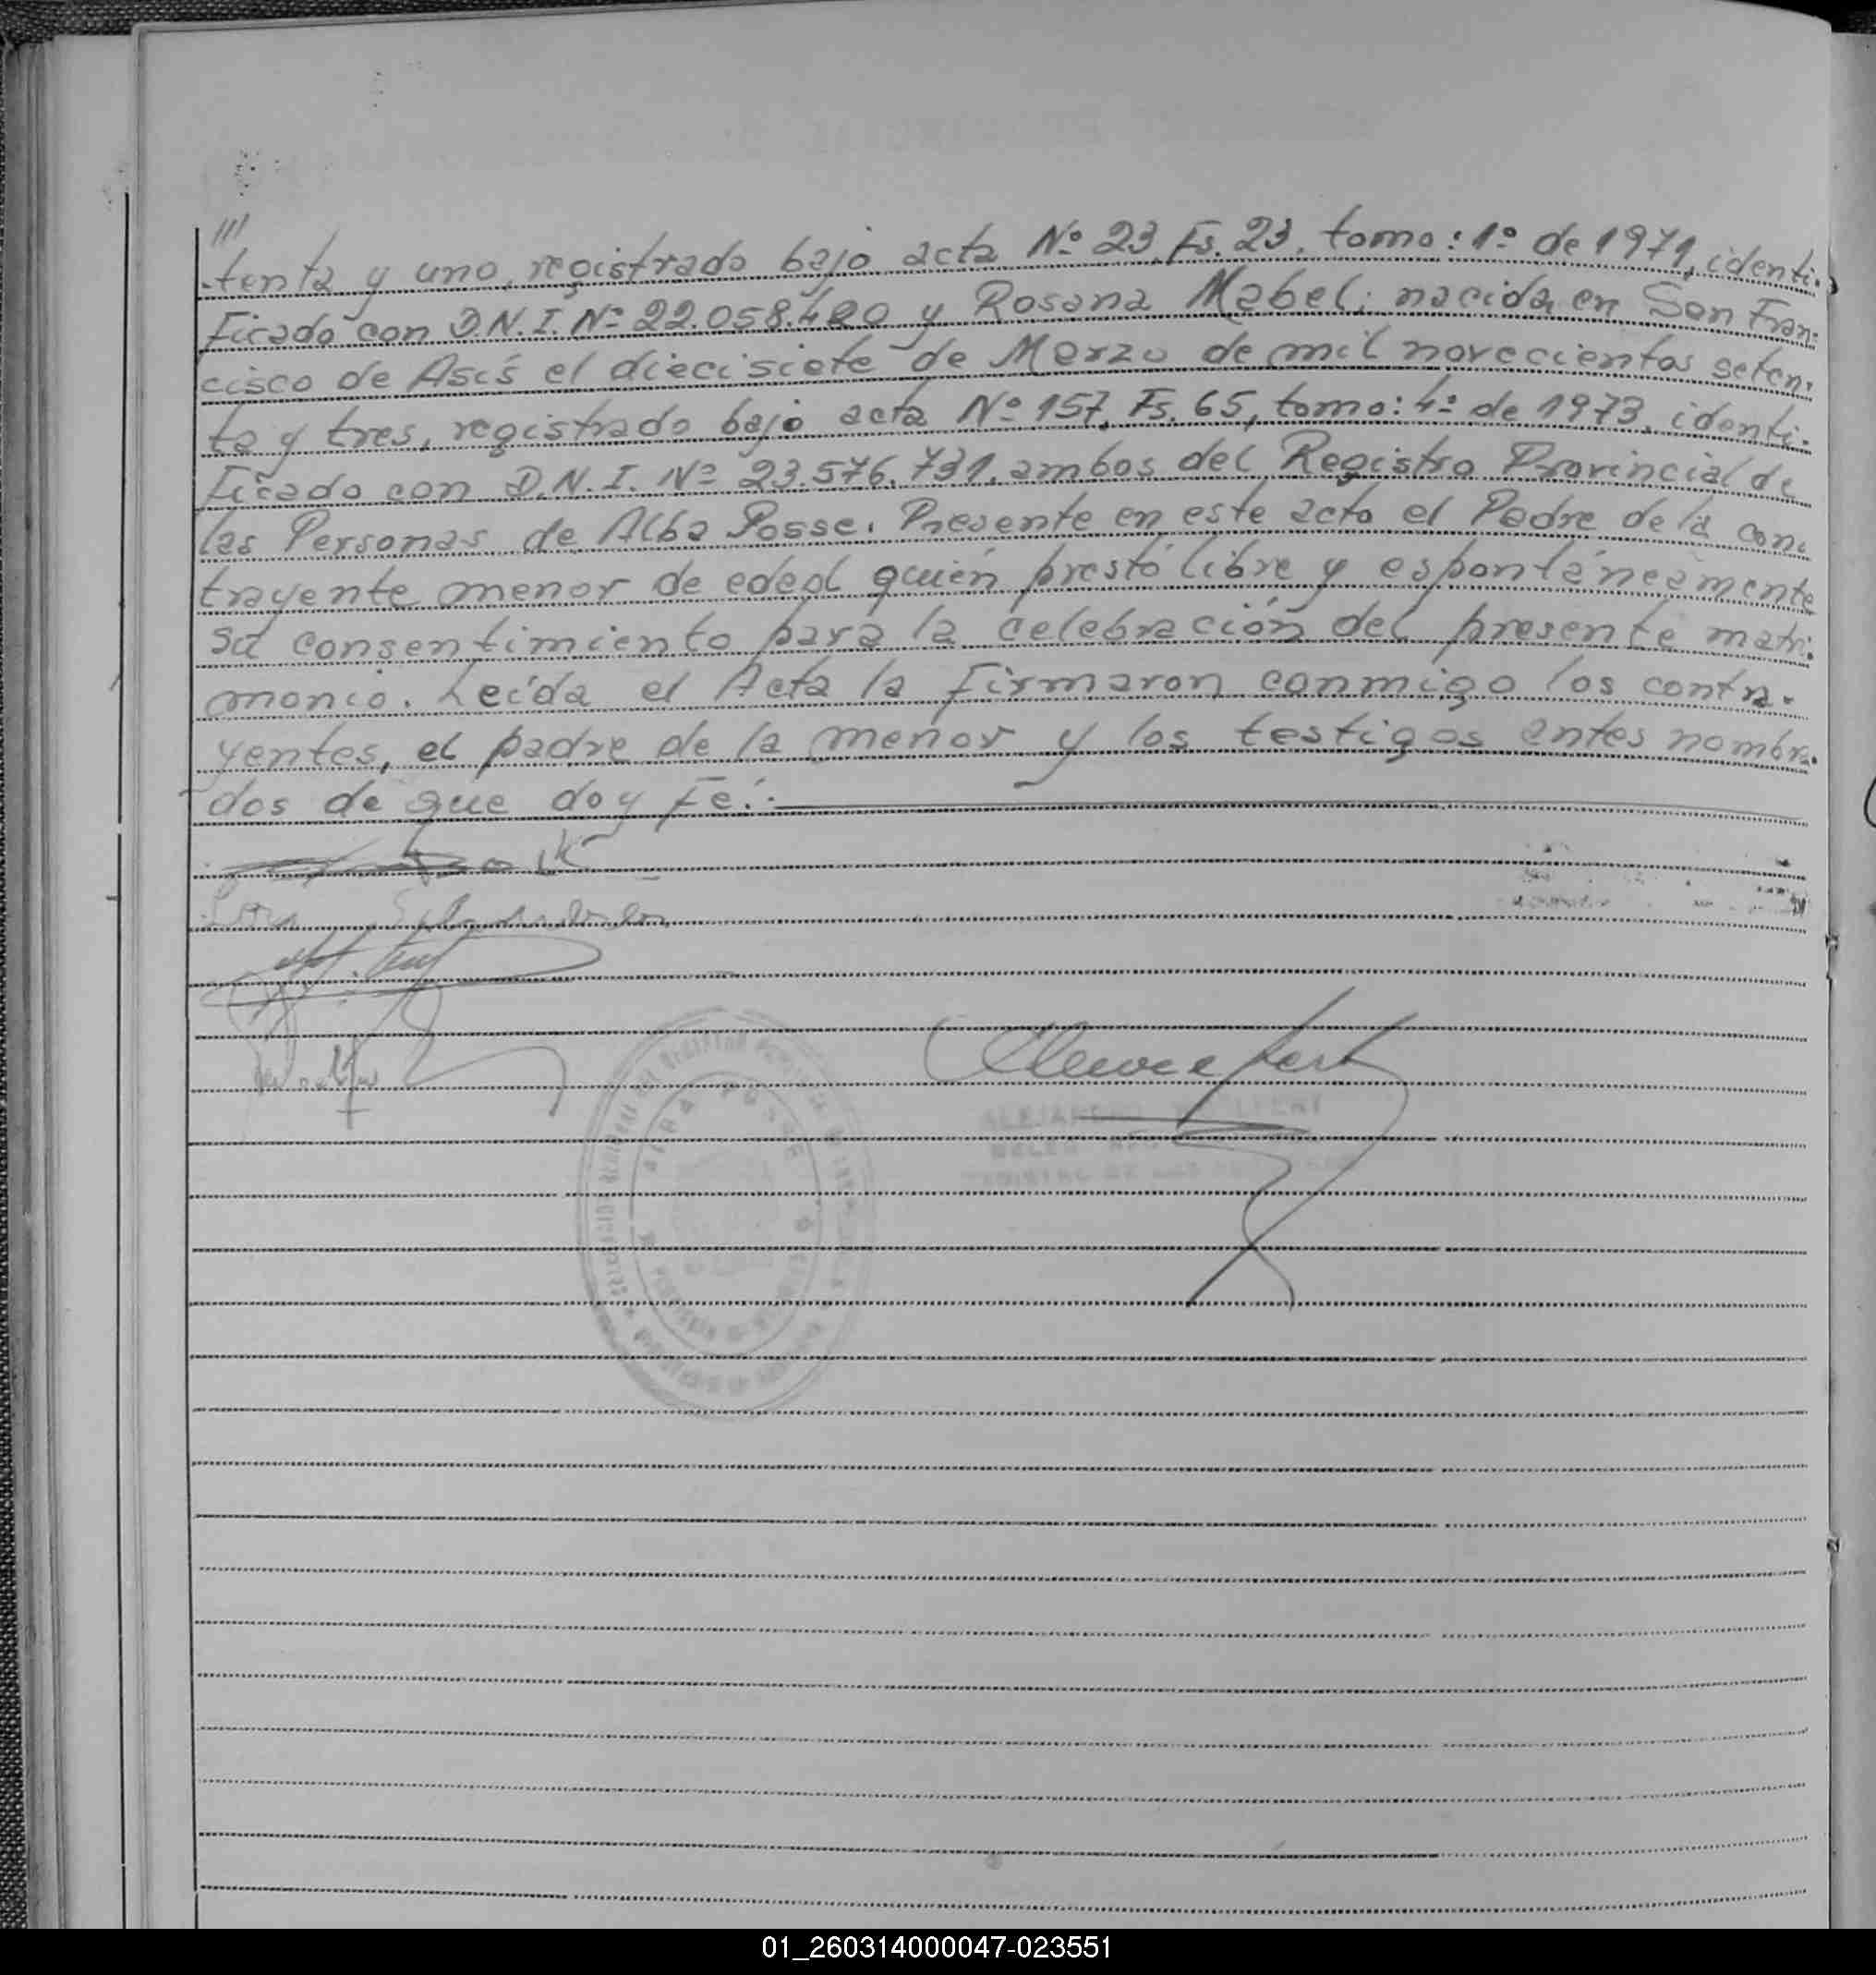 ///
tenta y uno, registrado bajo acta Nº 23, Fs. 23, tomo: 1º de 1971, identi-
ficado con D.N.I. Nº 22.058.420 y Rosana Mabel; nacida en San Fran-
cisco de Asís el diecisiete de Marzo de mil novecientos seten-
ta y tres, registrado bajo acta Nº 157, Fs. 65, tomo: 4º de 1973, identi-
ficado con D.N.I. Nº 23.576.731, ambos del Registro Provincial de
las Personas de Alba Posse. Presente en este acto el Padre de la con-
trayente menor de edad quién prestó libre y espontáneamente
su consentimiento para la celebración del presente matri-
monio. Leída el Acta la firmaron conmigo los contra-
yentes, el padre de la menor y los testigos antes nombra-
dos de que doy fé.-
ALBA POSSE
ALEJANDRO
01_260314000047-023551